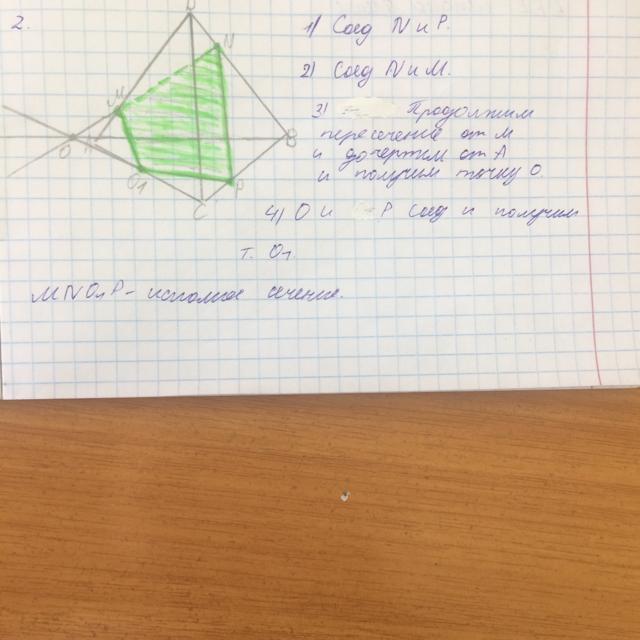 2.
D
N
M
O
B
O1
P
C
1) Соед N и P.
2) Соед N и M.
3) Продолжим
пересечение от M
и дочертим от A
и получим точку O
4) O и P соед и получим
т. O1
MNO1P - искомое сечение.